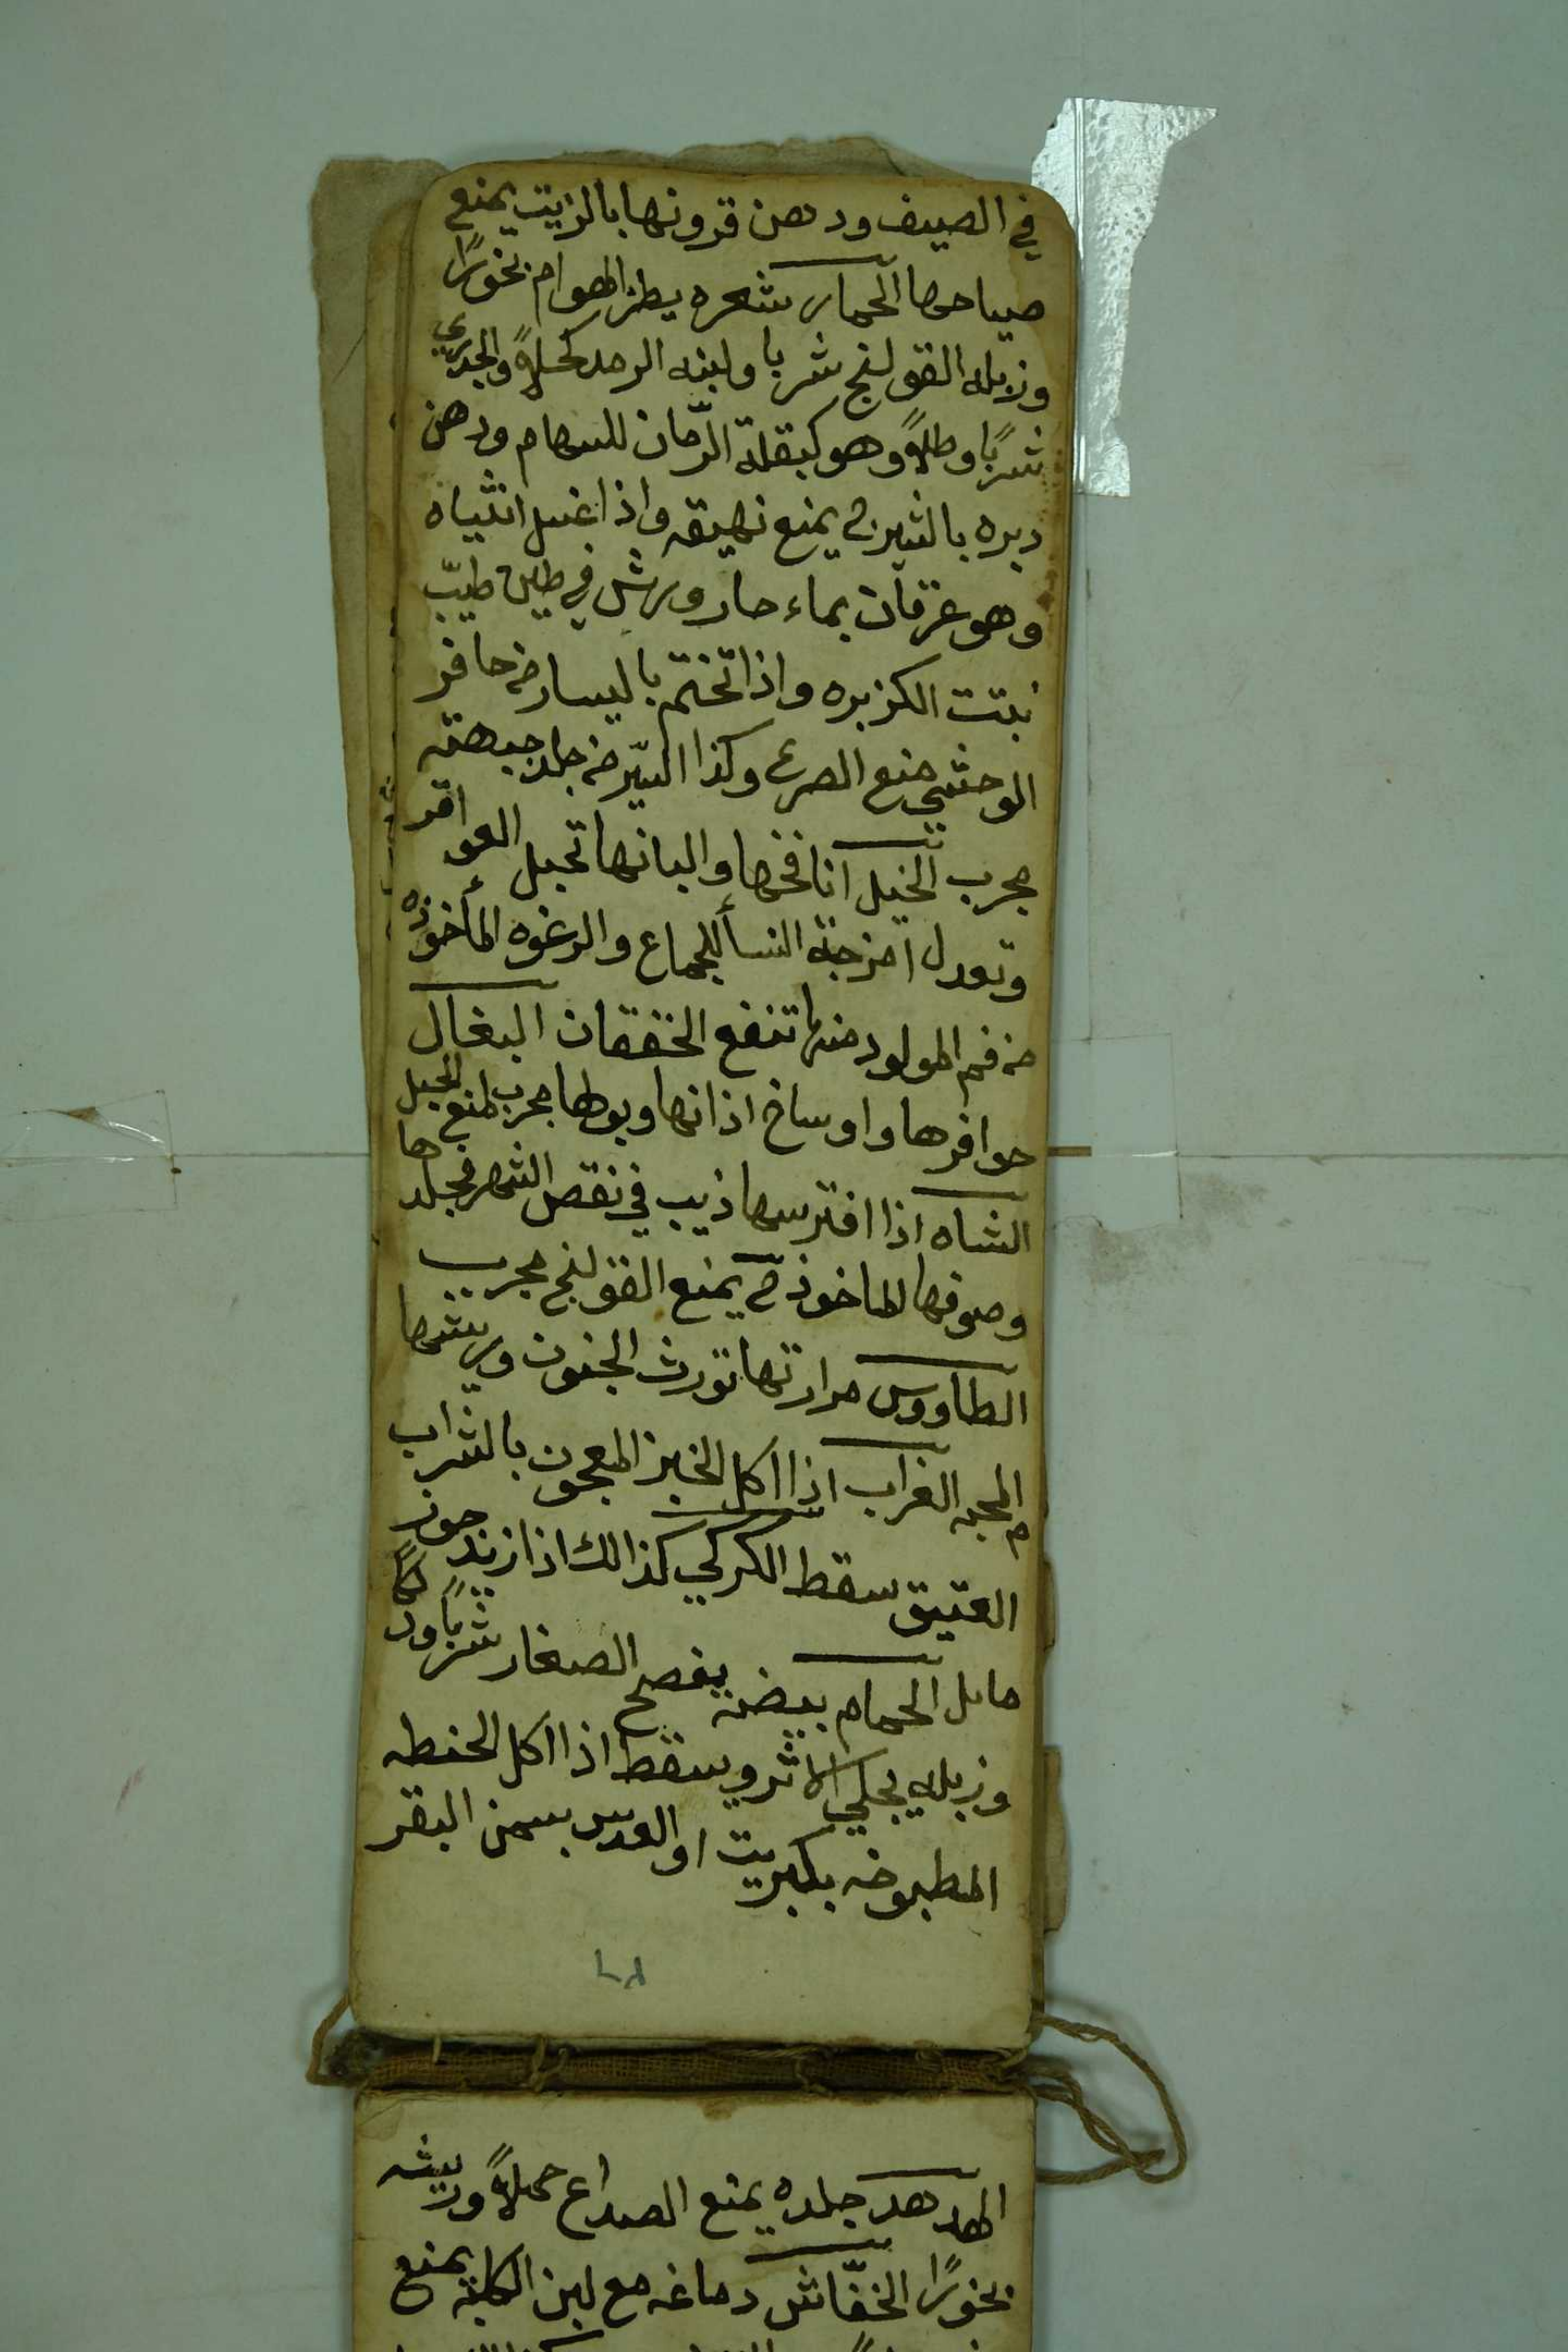 في الصيف ودهن قرونها بالزيت يمنع
صياحها الحمار شعره يطرد الهوام بخورًا
وزبله القولنج شربا ولبنه الرمد كحلاً والجدري
شربًا وطلاً وهو كبقلة الرّمان للسهام ودهن
دبره بالشيرج يمنع نهيقه واذا غسل انثياه
وهو عرقان بماء حار ورش في طين طيّب
نبتت الكزبره واذا تختم باليسار من حافر
الوحشي منع الصرع وكذا السّير من جلد جبهته
مجرب الخيل انافخها والبانها تحبل العواقر
وتعدل امزجة النسأ للجماع والرغوه المأخوذه
من فم المولود منها تنفع الخفقان البغال
حوافرها واوساخ اذانها وبولها مجرب لمنع الحبل
الشاه اذا افترسها ذيب في نقص الشهر فجلدها
وصوفها الماخوذ ح يمنع القولنج مجرب
الطاووس مرارتها تورث الجنون وريشها
المحبه الغراب اذا اكل الخبز المعجون بالشراب
العتيق سقط الكركي كذالك اذا زيد جوز
ماىل الحمام بيضه يفصح الصغار شربًا ودلكًا
وزبله يجلي الاثر ويسقط اذا اكل الحنطه
المطبوخه بكبريت او العدس بسمن البقر
الهدهد جلده يمنع الصداع حملاً وريشه
بخورًا الخفّاش دماغه مع لبن الكلبة يمنع